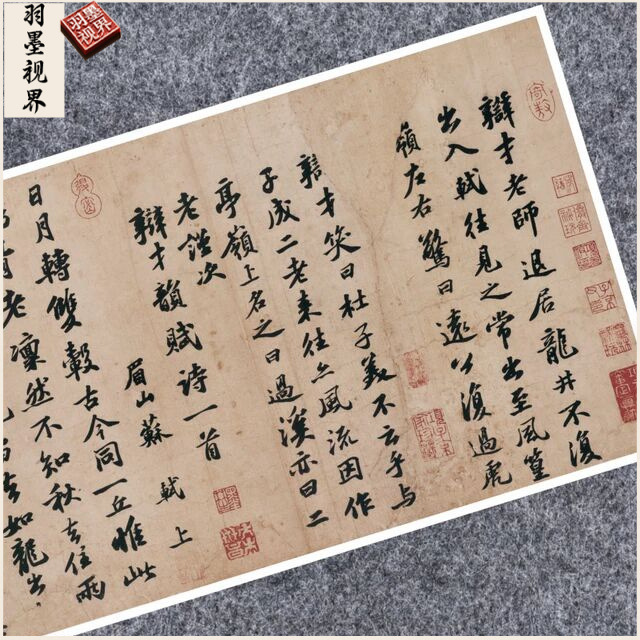 羽墨视界
羽墨视界
辯才老師退居龍井不復
出入軾往見之常出至風篁
嶺左右驚曰遠公復過虎
辯才笑曰杜子美不云乎與
子成二老來往亦風流因作
亭嶺上名之曰過溪亦曰二
老謹次
辯才韻賦詩一首
眉山蘇軾上
日月轉雙轂古今同一丘惟此
老凜然不知秋去住兩
去如龍出